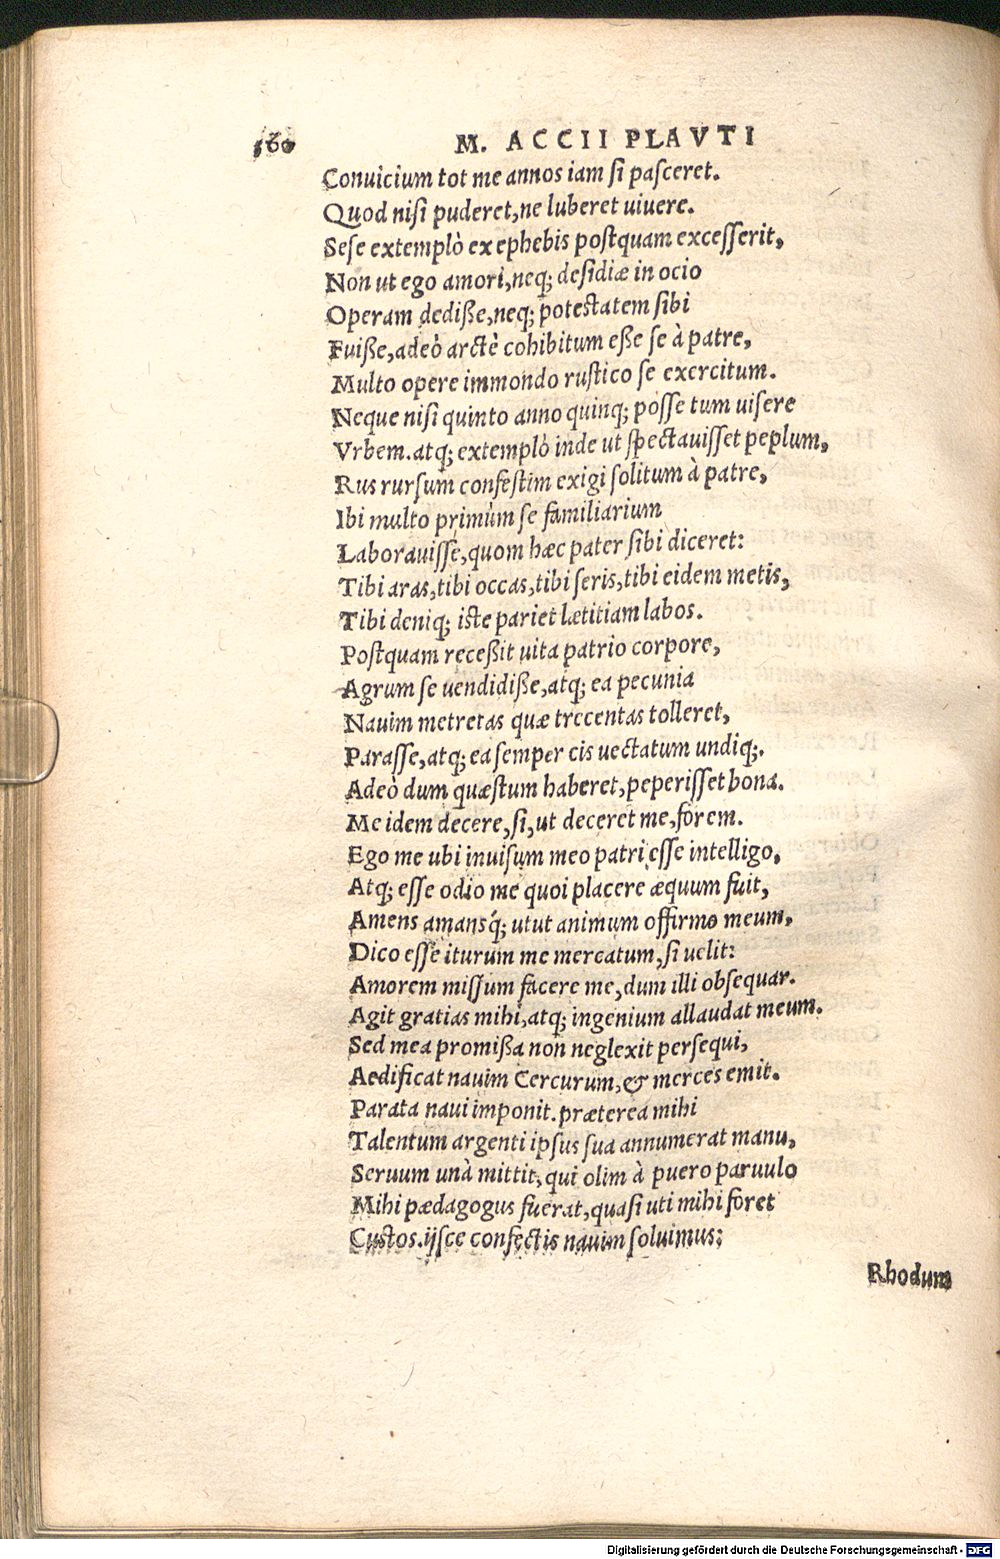 560 M. ACCII PLAVTI
Conuicium tot me annos iam ſi paſceret.
Quod niſi puderet, ne luberet uiuere.
Seſe extemplò ex ephebis postquam exceſſerit,
Non ut ego amori, neq; deſidiæ in ocio
Operam dediße, neq; potestatem ſibi
Fuiße, adeò arctè cohibitum eße ſe à patre,
Multo opere immondo rustico ſe exercitum.
Neque niſi quinto anno quinq; poſſe tum uiſere
Vrbem. atq; extemplò inde ut ſpectauiſſet peplum,
Rus rurſum confeſtim exigi ſolitum à patre,
Ibi multo primùm ſe familiarium
Laborauiſſe, quom hæc pater ſibi diceret:
Tibi aras, tibi occas, tibi ſeris, tibi eidem metis,
Tibi deniq; iſte pariet lætitiam labos.
Poſtquam receßit uita patrio corpore,
Agrum ſe uendidiße, atq; ea pecunia
Nauim metretas quæ trecentas tolleret,
Paraſſe, atq; ea ſemper cis uectatum undiq;.
Adeò dum quæſtum haberet, peperiſſet bona.
Me idem decere, ſi, ut deceret me, forem.
Ego me ubi inuiſum meo patri eſſe intelligo,
Atq; eſſe odio me quoi placere æquum fuit,
Amens amansq́; utut animum offirmo meum,
Dico eſſe iturum me mercatum, ſi uelit:
Amorem miſſum facere me, dum illi obſequar.
Agit gratias mihi, atq; ingenium allaudat meum.
Sed mea promißa non neglexit perſequi,
Aedificat nauim Cercurum, & merces emit.
Parata naui imponit. præterea mihi
Talentum argenti ipſus ſua annumerat manu,
Seruum unà mittit, qui olim à puero paruulo
Mihi pædagogus fuerat, quaſi uti mihi foret
Cuſtos. ijſce confectis nauim ſoluimus:
Rhodum
Digitalisierung gefördert durch die Deutsche Forschungsgemeinschaft - DFG